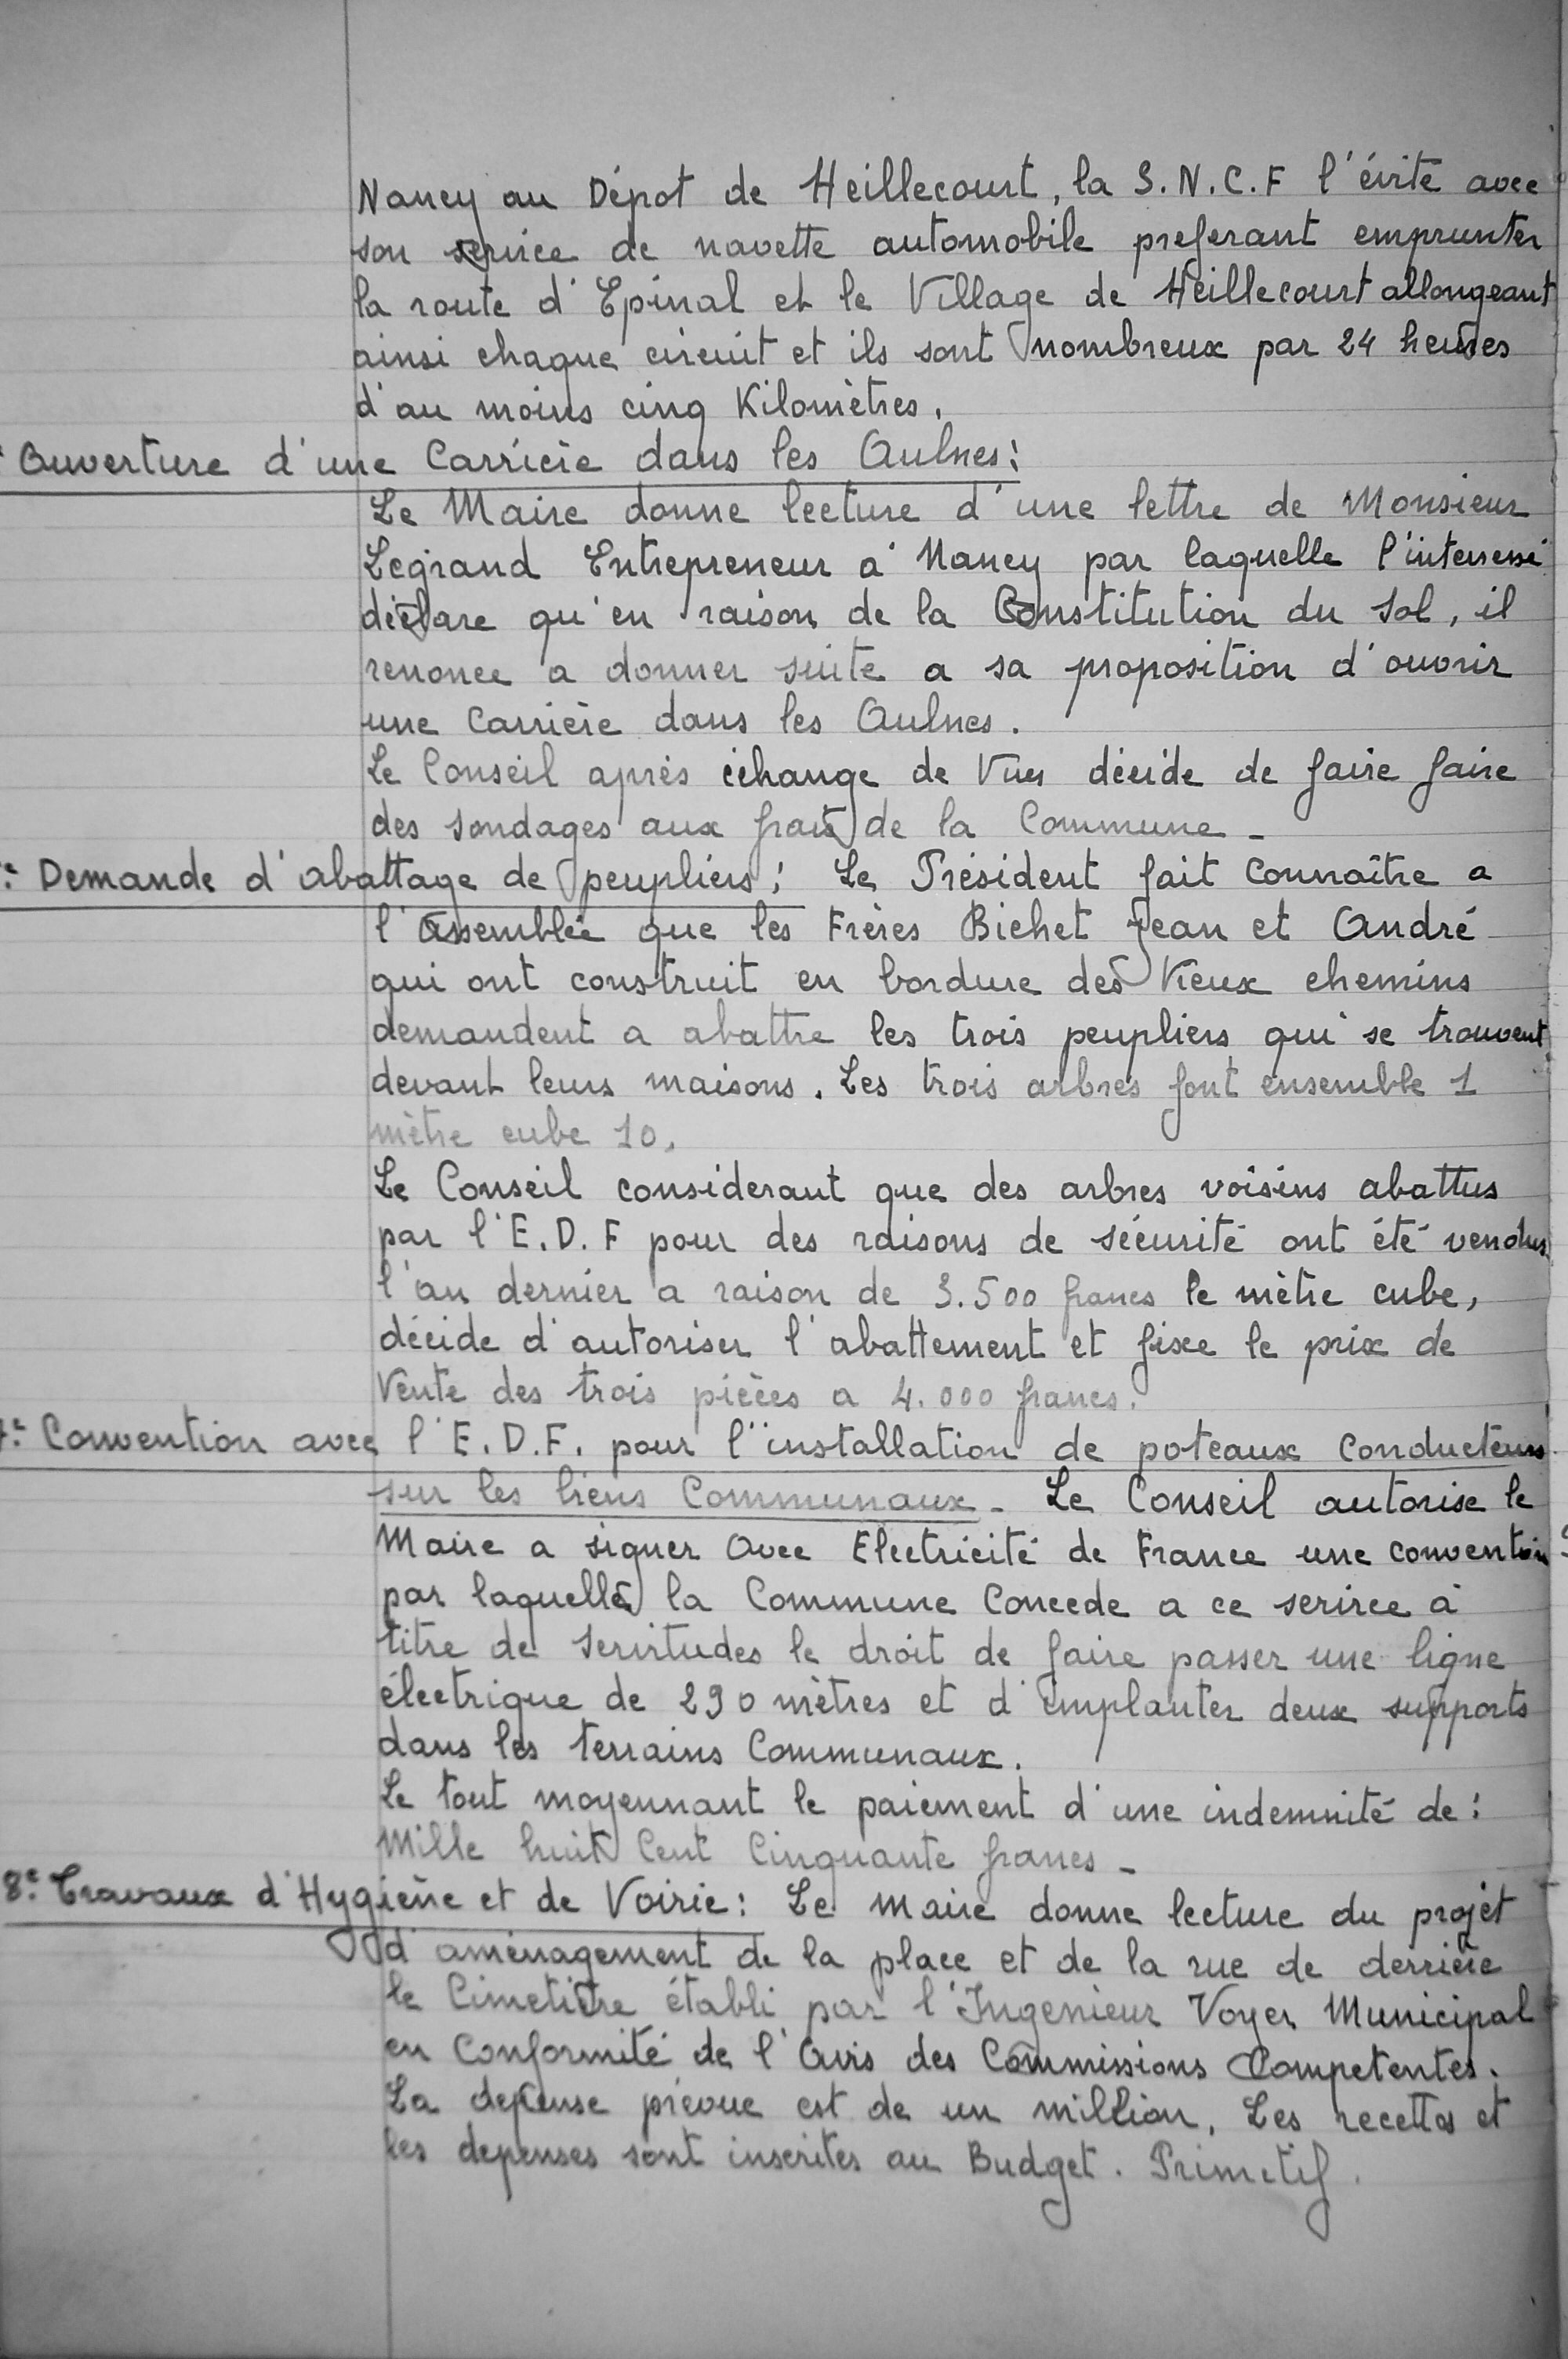 Nancy au Dépot de Heillecourt, la S.N.C.F l'évite avec
son service de navette automobile preferant emprunter
la route d'Epinal et le Village de Heillecourt allongeant
ainsi chaque circuit et ils sont nombreux par 24 heures
d'au moins cinq Kilomètres.
Ouverture d'une Carrière dans les Aulnes:
Le Maire donne lecture d'une lettre de Monsieur
Legrand Entrepreneur à Nancy par laquelle l'interessé
déclare qu'en raison de la Constitution du sol, il
renonce a donner suite a sa proposition d'ouvrir
une Carrière dans les Aulnes.
Le Conseil après échange de Vues décide de faire faire
des sondages aux frais de la Commune -
Demande d'abattage de peupliers: Le Président fait Connaître a
l'Assemblée que les Frères Bichet Jean et André
qui ont construit en bordure des Vieux chemins
demandent a abattre les trois peupliers qui se trouvent
devant leurs maisons. Les trois arbres font ensemble 1
mètre cube 10.
Le Conseil considerant que des arbres voisins abattus
par l'E.D.F pour des raisons de sécurité ont été vendus
l'an dernier a raison de 3.500 francs le mètre cube,
décide d'autoriser l'abattement et fixe le prix de
Vente des trois pièces a 4.000 francs.
Convention avec l'E.D.F. pour l'installation de poteaux Conducteurs
sur les biens Communaux - Le Conseil autorise le
Maire a signer Avec Electricité de France une convention
par laquelle la Commune Concede a ce service à
titre de Servitudes le droit de faire passer une ligne
électrique de 290 mètres et d'implanter deux supports
dans les terrains Communaux.
Le tout moyennant le paiement d'une indemnité de:
Mille huit Cent Cinquante francs -
8e: Travaux d'Hygiène et de Voirie: Le Maire donne lecture du projet
d'aménagement de la place et de la rue de derrière
le Cimetière établi par l'Ingenieur Voyer Municipal
en Conformité de l'Avis des Commissions Competentes.
La depense prévue est de un million. Les recettes et
les depenses sont inscrites au Budget. Primitif.